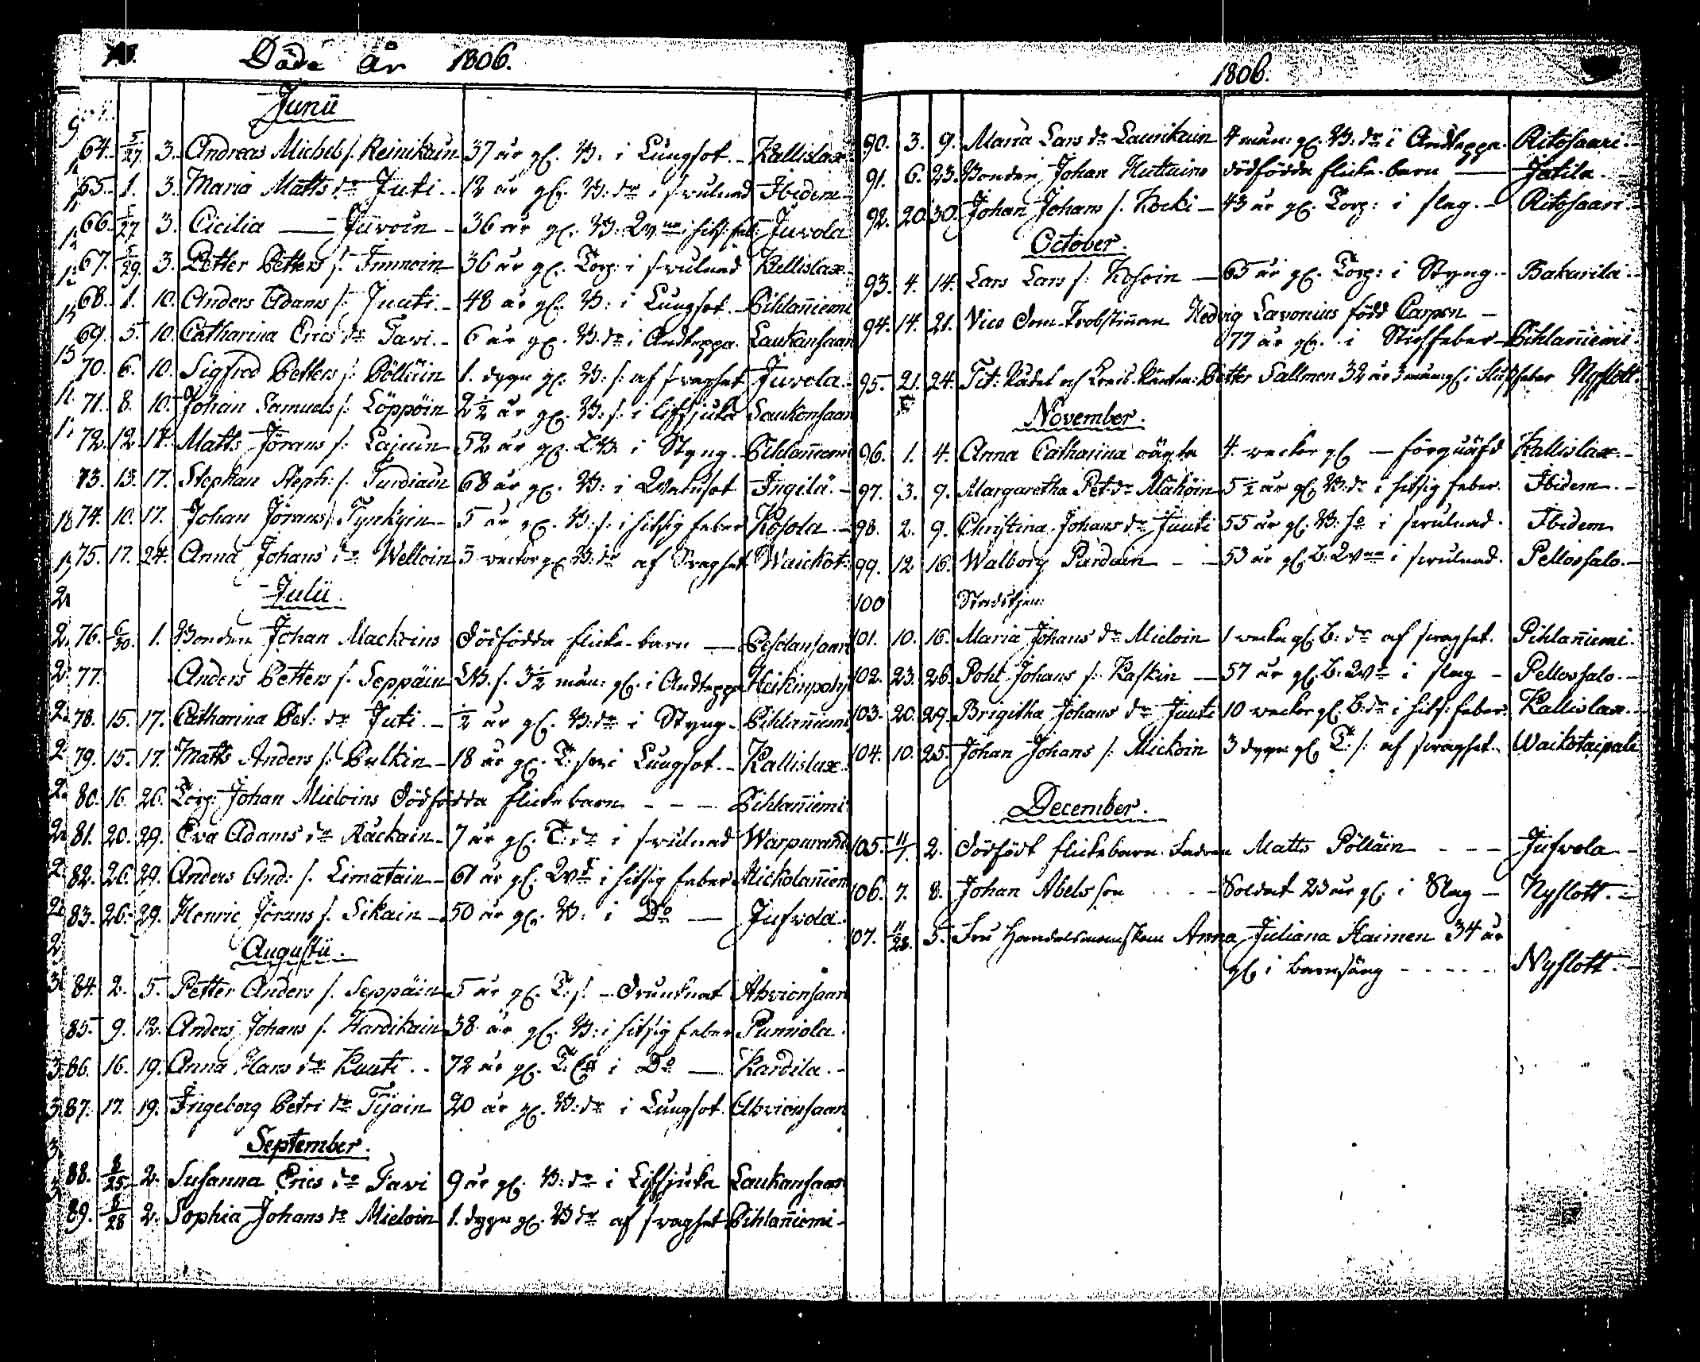 Döde År 1806.
Junii
64. 5/27 3. Andreas Michels s. Reinikain 37 år gl. B: i Lungsot. Kallislax
65. 1. 3. Maria Matts dr Juti. 12 år gl. B: dr i svulnad Ibidem
66. 5/27 3. Cicilia — Juvoin 36 år gl. B: hits: feb: Juvola
67. 5/29 3. Petter Petters s. Immoin 36 år gl. Torp: i svulnad Kallislax
68. 1. 10. Anders Adams s: Juuti. 48 år gl. B: i Lungsot. Pihlaniemi
69. 5. 10. Catharina Erics dr Tavi. 6 år gl. B. dr i Andteppa. Laukansaari
70. 6. 10. Sigfred Petters s: Pölläin 1. dygn gl. B: s: af svaghet Juvola.
71. 8. 10. Johan Samuels s: Löppöin 2 1/2 år gl. B: s: i lifsjuka Laukansaari
72. 12. 17. Matts Jörans s: 52 år gl. i Styng. Pihlaniemi
73. 13. 17. Stephan Steph: s: Turdiain 68 år gl. B: i Watusot Ingilä.
74. 10. 17. Johan Jörans s: Tynkyin 5 år gl. B: s: i hitsig feber Kosola
75. 17. 24. Anna Johans dr Welloin 3 veckor gl. B. dr af Svaghet Waickot:
Julii.
76. 6/30. 1. Bonden Johan Mackoins Dödfödda flicke-barn — Pesolansaari
77. Anders Petters s. Seppäin s. 3 1/2 mån: gl. i Andteppa Heikinpohj
78. 15. 17. Catharina Pet: dr Juti. 1/2 år gl. B: dr i Styng. Pihlaniemi
79. 15. 17. Matts Anders s: Pulkin 18 år gl. T: i Lungsot. Kallislax
80. 16. 26. Torp: Johan Mieloins Dödfödda flicke barn - - - Pihlaniemi
81. 20. 29. Eva Adams dr Räckäin 7 år gl. T: dr i svulnad Warparanda
82. 26. 29. Anders And: s. Limatain 61 år gl. i hitsig feber Mickolaniemi
83. 26. 29. Henric Jörans s. Sikain 50 år gl. B: i Do — Jufvola.
Augustii.
84. 2. 5. Petter Anders s. Seppäin 5 år gl. T: s: Drunknat Ahvionsaari
85. 9. 12. Anders Johans s. Hardikain 38 år gl. B: i hitsig feber Pumiola.
86. 16. 19. Anna Hans dr Kuuti 72 år gl. T. i Do — Kardila.
87. 17. 19. Ingeborg Petri dr Tijain 20 år gl. B: dr i Lungsot. Ahvionsaari
September.
88. 8/25 2. Susanna Erics dr Tavi 9 år gl. B: dr i Lifsjuka Laukansaari
89. 8/28 2. Sophia Johans dr Mieloin 1. dygn gl. B dr af svaghet Pihlaniemi
1806.
90. 3. 9. Maria Lars dr Laurikain 4 mån: gl. B: dr i Andteppa. Ritosaari.
91. 6. 23. Bonden Johan Huttuins dödfödda flicke-barn — Jatila.
92. 20. 30. Johan Johans s. Kocki 43 år gl. Torp: i slag. Ritosaari.
October.
93. 4. 14. Lars Lars s: Kosoin 65 år gl. Torp: i Styng. Bakarila.
94. 14. 21. Vice Dom-Probstinnan Hedvig Lavonius född Carpen
77 år gl. i Pihlaniemi
95. 21. 24. Tit: Rådet och Petter Sallmen 32 år 3 mån gl. i feber Nyslott.
November.
96. 1. 4. Anna Catharina oägta 4. veckor gl — förquäfd Kallislax.
97. 3. 9. Margaretha Pet: dr Makoin 5 1/2 år gl. B: dr i hitsig feber. Ibidem.
98. 2. 9. Christina Johans dr Juuti 55 år gl. B: i svulnad. Ibidem
99. 12 16. Walborg Pardain 53 år gl. B: i svulnad. Pellossalo.
100
101. 10. 16. Maria Johans dr Mieloin 1 vecka gl. B: dr af svaghet. Pihlaniemi.
102. 23. 26. Pohl Johans s: Kaskin 57 år gl. B: i slag Pellossalo.
103. 20. 29. Brigitha Johans dr Juuti 10 veckor gl. B: dr i hits: feber Kallislax.
104. 10. 25. Johan Johans s: Mickoin 3 dygn gl. T: s: af svaghet. Waikotaipale
December.
105. 11/7. 2. Dödfödt flickebarn Matts Pölläin - - - Jufvola
106. 7. 8. Johan Abelsson Soldat år gl. i Slag Nyslott.
107. 11/28. 5. Fru Anna Juliana Haimen 34 år
gl. i barnsäng - - - - Nyslott.